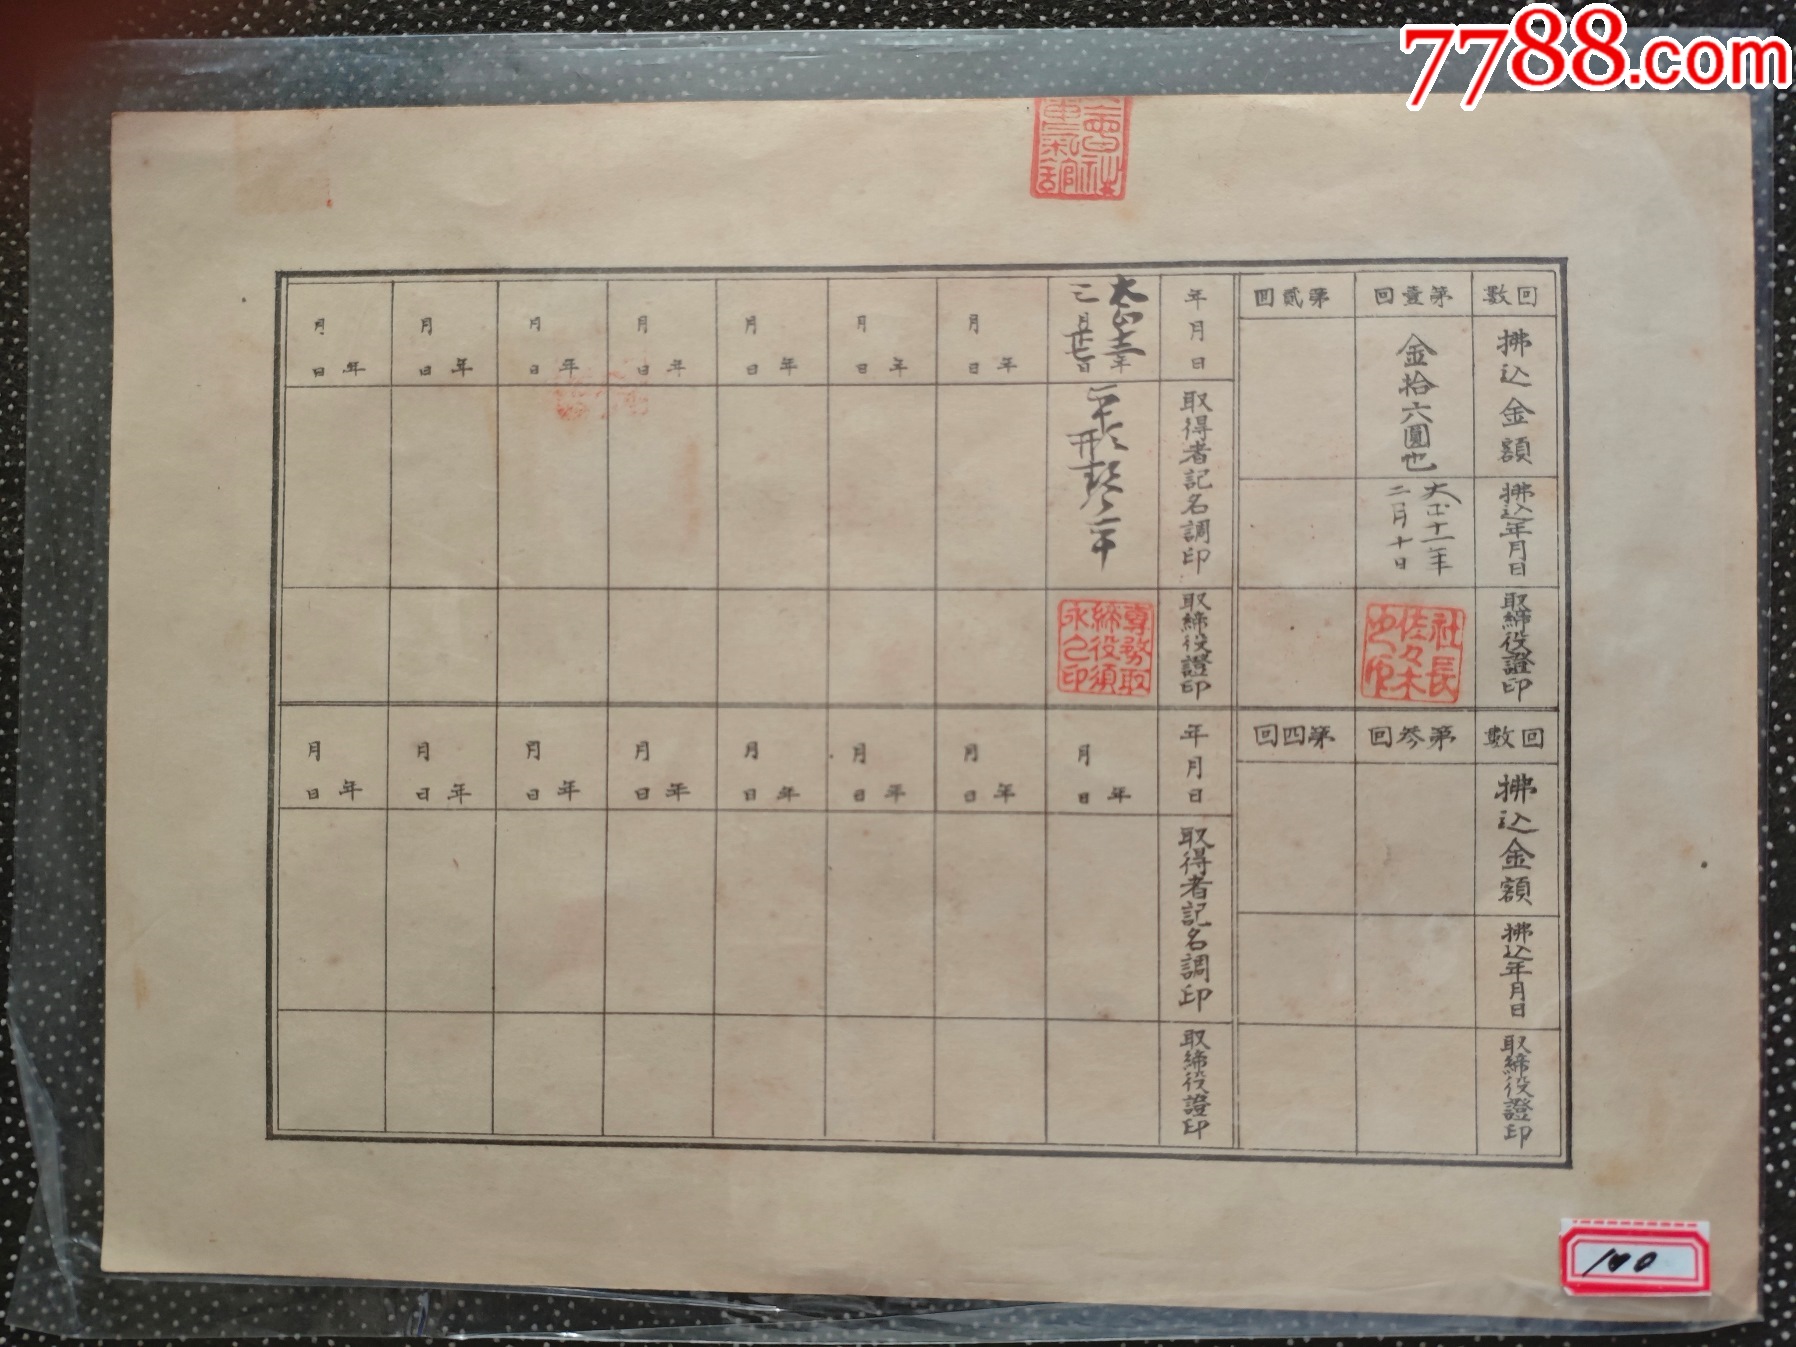 7788.com
回數
拂込金額
拂込年月日
取締役證印
第壹回
金拾六圓也
大正十一年
二月十日
社長
佐々木
第貳回
回數
拂込金額
拂込年月日
取締役證印
第參回
第四回
年月日
取得者記名調印
取締役證印
大正
專務取
締役須
永乙印
年
月日
年
月日
年
月日
年
月日
年
月日
年
月日
年
月日
年月日
取得者記名調印
取締役證印
年
月日
年
月日
年
月日
年
月日
年
月日
年
月日
年
月日
年
月日
100